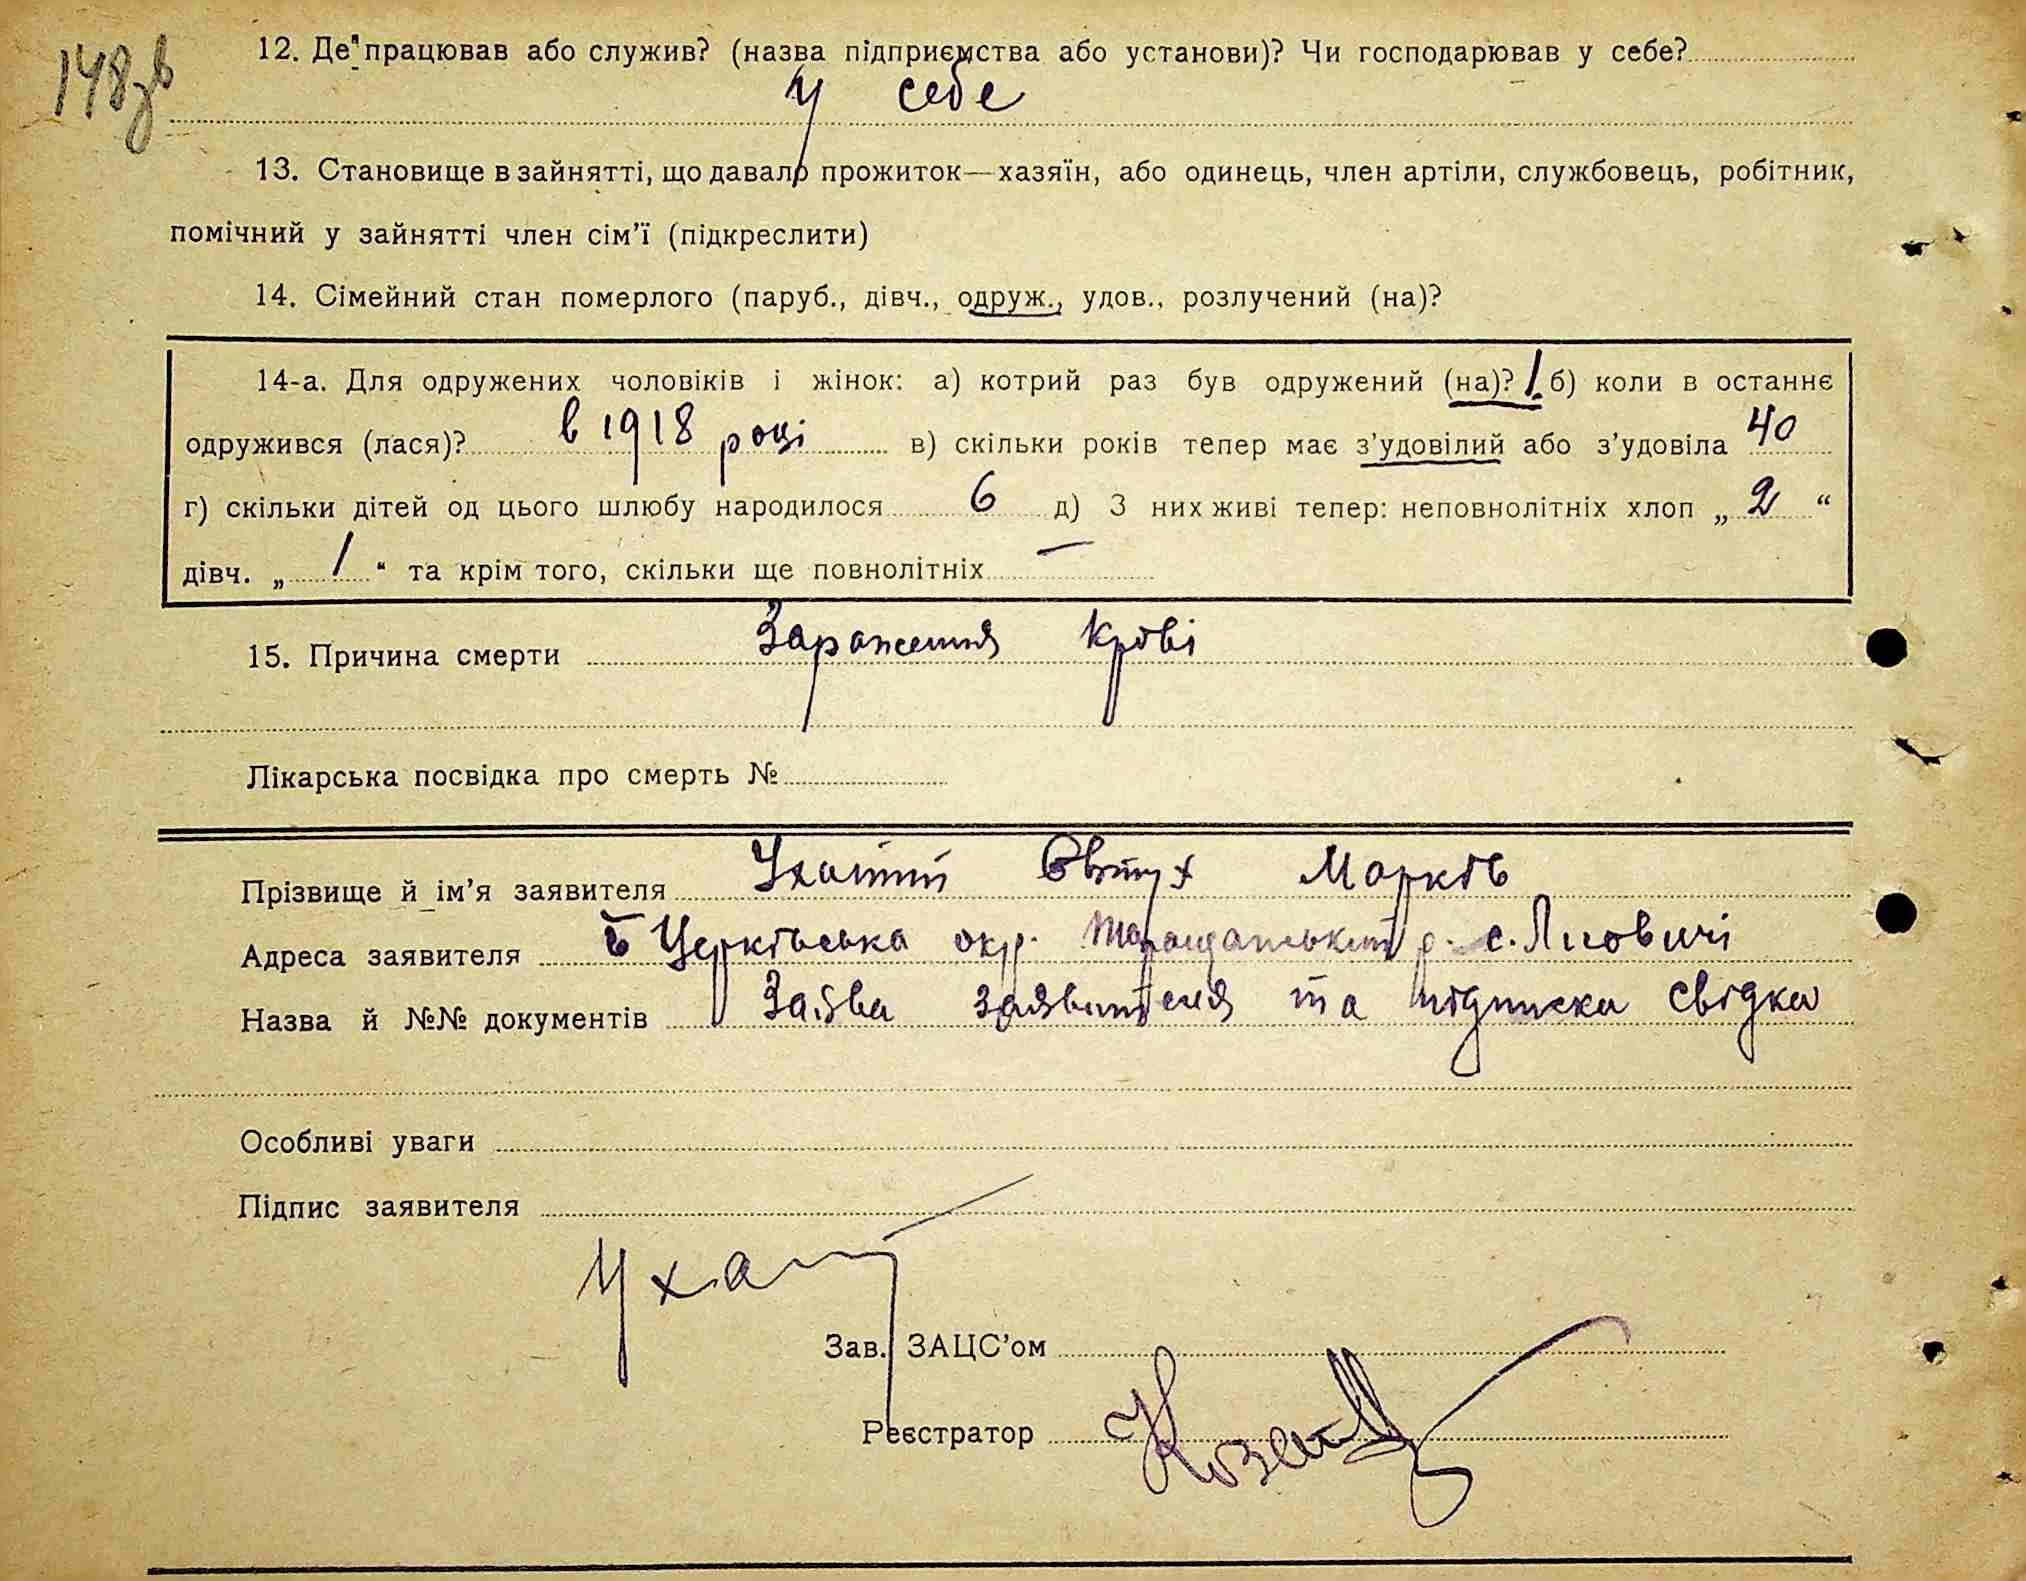 148зв
12. Де працював або служив? (назва підприємства або установи)? Чи господарював у себе?
у себе
13. Становище в зайнятті, що давало прожиток—хазяїн, або одинець, член артіли, службовець, робітник,
помічний у зайнятті член сім'ї (підкреслити)
14. Сімейний стан померлого (паруб., дівч., одруж., удов., розлучений (на)?
14-а. Для одружених чоловіків і жінок: а) котрий раз був одружений (на)? 1. б) коли в останнє
одружився (лася)? в 1918 році в) скільки років тепер має з'удовілий або з'удовіла 40
г) скільки дітей од цього шлюбу народилося 6 д) З них живі тепер: неповнолітніх хлоп „ 2 “
дівч. „ 1 “ та крім того, скільки ще повнолітніх —
15. Причина смерти Зараження крові
Лікарська посвідка про смерть №
Прізвище й ім'я заявителя Ухатий Євтух Марків
Адреса заявителя Б Церківська окр. Таращанський р. с. Лисовичі
Назва й №№ документів Заява заявителя та підписка свідка
Особливі уваги
Підпис заявителя
Ухат
Зав. ЗАЦС'ом
Реєстратор